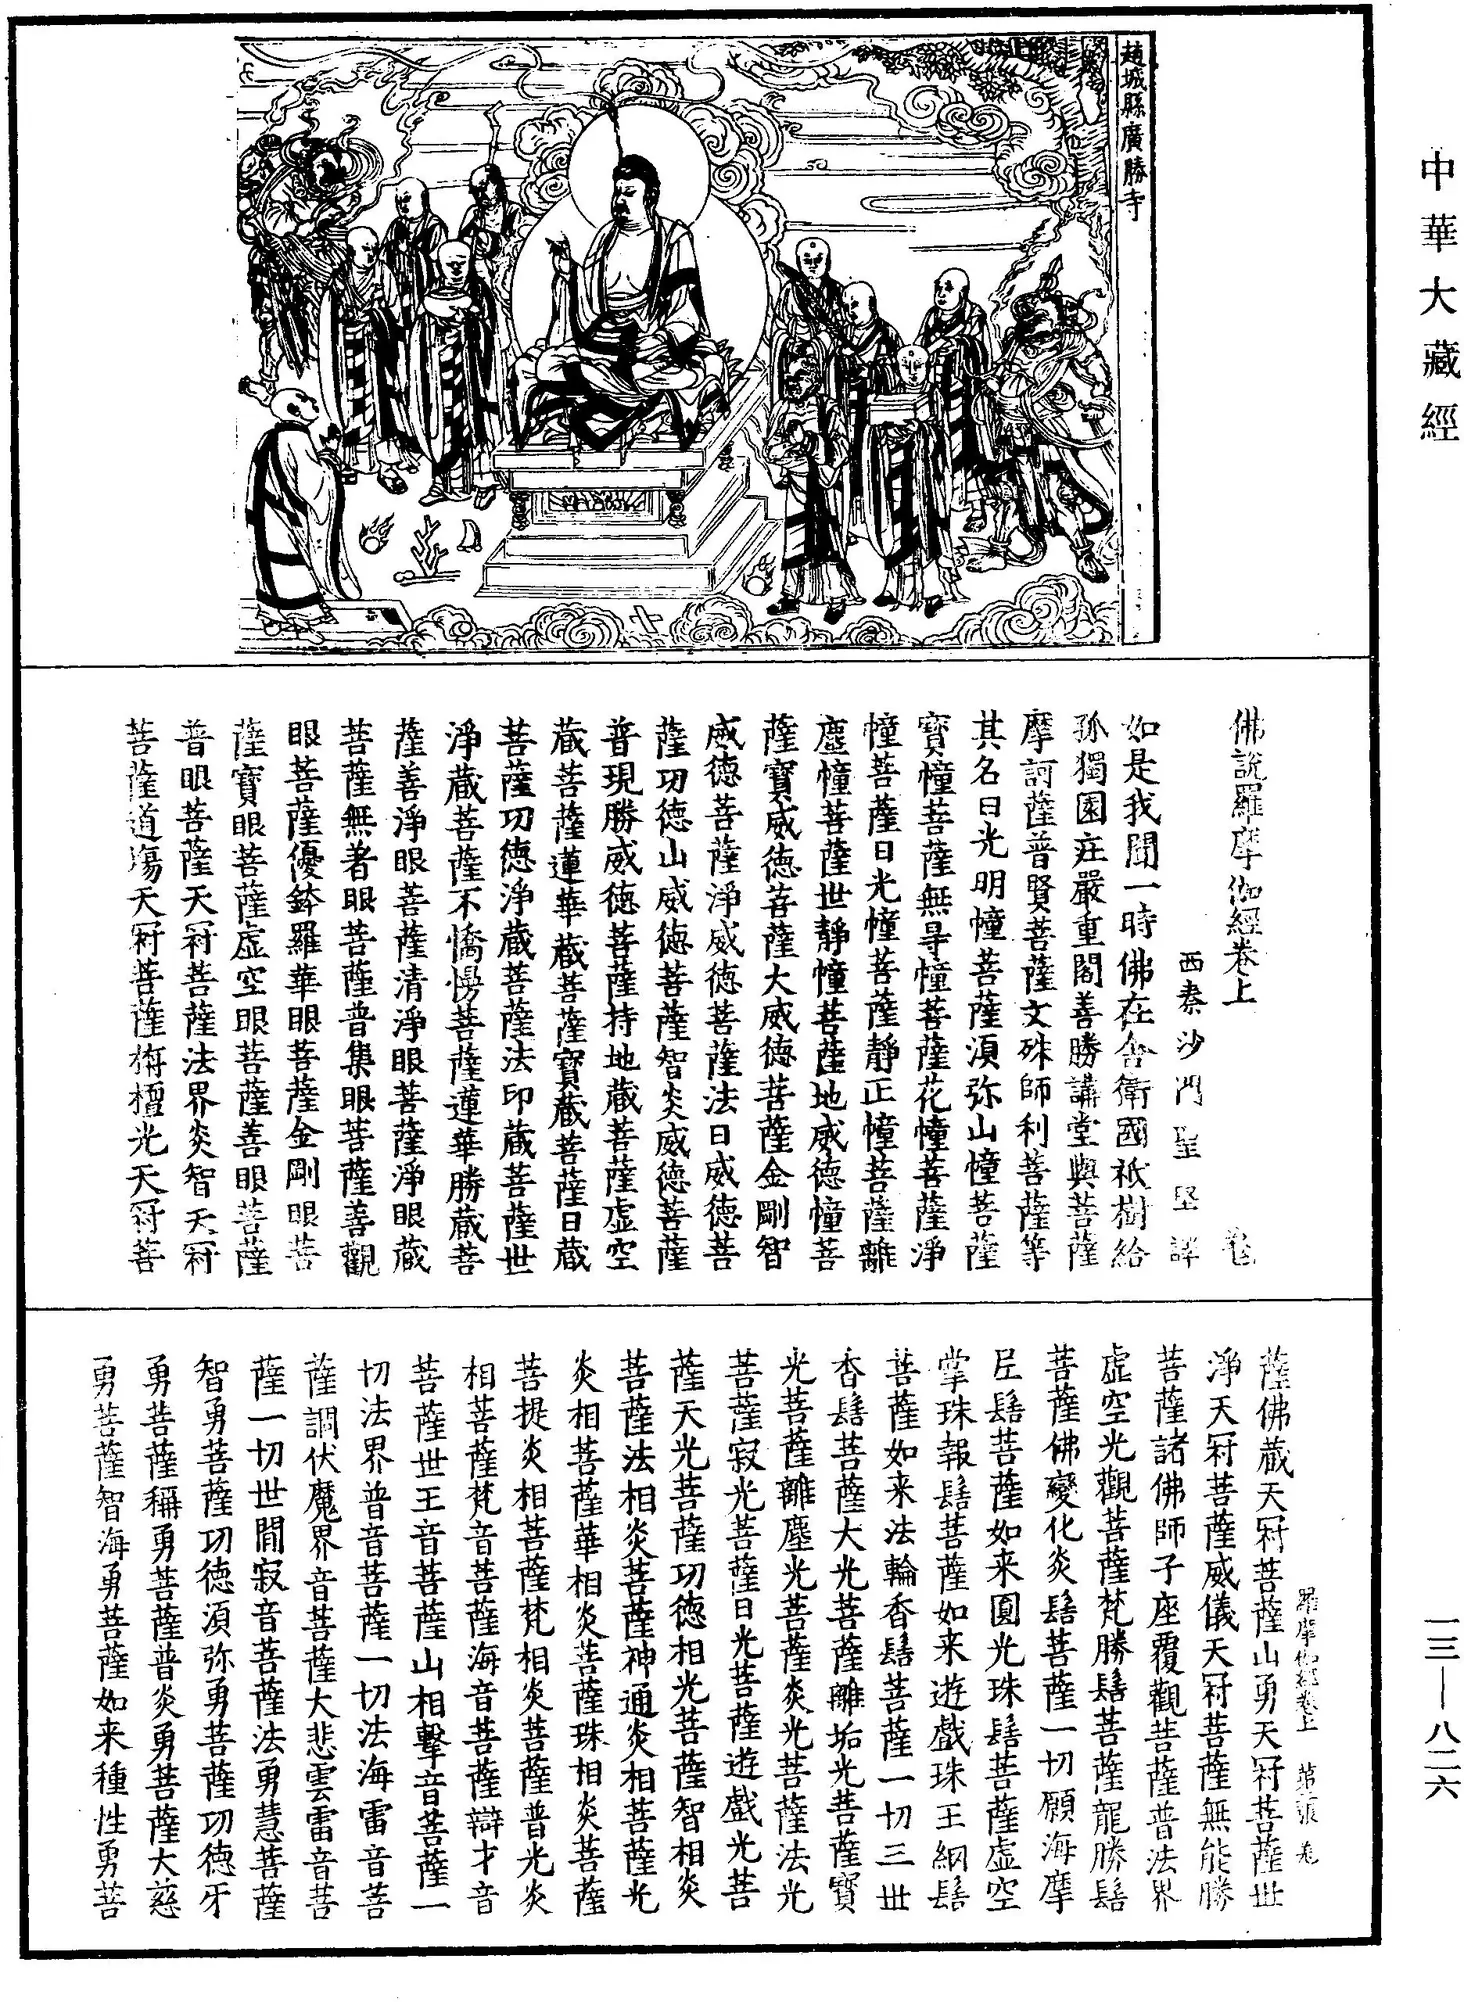 中華大藏經
趙城縣廣勝寺
佛說羅摩伽經卷上
西秦沙門聖堅譯
如是我聞一時佛在舍衛國祇樹給
孤獨園莊嚴重閣善勝講堂與菩薩
摩訶薩普賢菩薩文殊師利菩薩等
其名曰光明幢菩薩湏弥山幢菩薩
寶幢菩薩無㝵幢菩薩花幢菩薩淨
幢菩薩日光幢菩薩靜正幢菩薩離
塵幢菩薩世靜幢菩薩地威德幢菩
薩寶威德菩薩大威德菩薩金剛智
威德菩薩淨威德菩薩法日威德菩
薩功德山威德菩薩智炎威德菩薩
普現勝威德菩薩持地藏菩薩虛空
藏菩薩蓮華藏菩薩寶藏菩薩日藏
菩薩功德淨藏菩薩法印藏菩薩世
淨藏菩薩不憍慢菩薩蓮華勝藏菩
薩善淨眼菩薩清淨眼菩薩淨眼藏
菩薩無著眼菩薩普集眼菩薩善觀
眼菩薩優鉢羅華眼菩薩金剛眼菩
薩寶眼菩薩虛空眼菩薩善眼菩薩
普眼菩薩天冠菩薩法界炎智天冠
菩薩道場天冠菩薩栴檀光天冠菩
羅摩伽經卷上
薩佛藏天冠菩薩山勇天冠菩薩世
淨天冠菩薩威儀天冠菩薩無能勝
菩薩諸佛師子座覆觀菩薩普法界
虛空光觀菩薩梵勝髻菩薩龍勝髻
菩薩佛變化炎髻菩薩一切願海摩
尼髻菩薩如来圓光珠髻菩薩虛空
掌珠報髻菩薩如来遊戲珠王網髻
菩薩如来法輪香髻菩薩一切三世
香髻菩薩大光菩薩離垢光菩薩寶
光菩薩離塵光菩薩炎光菩薩法光
菩薩寂光菩薩日光菩薩遊戲光菩
薩天光菩薩功德相光菩薩智相炎
菩薩法相炎菩薩神通炎相菩薩光
炎相菩薩華相炎菩薩珠相炎菩薩
菩提炎相菩薩梵相炎菩薩普光炎
相菩薩梵音菩薩海音菩薩辯才音
菩薩世王音菩薩山相擊音菩薩一
切法界普音菩薩一切法海雷音菩
薩調伏魔界音菩薩大悲雲雷音菩
薩一切世間寂音菩薩法勇慧菩薩
智勇菩薩功德湏弥勇菩薩功德牙
勇菩薩稱勇菩薩普炎勇菩薩大慈
勇菩薩智海勇菩薩如来種性勇菩
一三—八二六